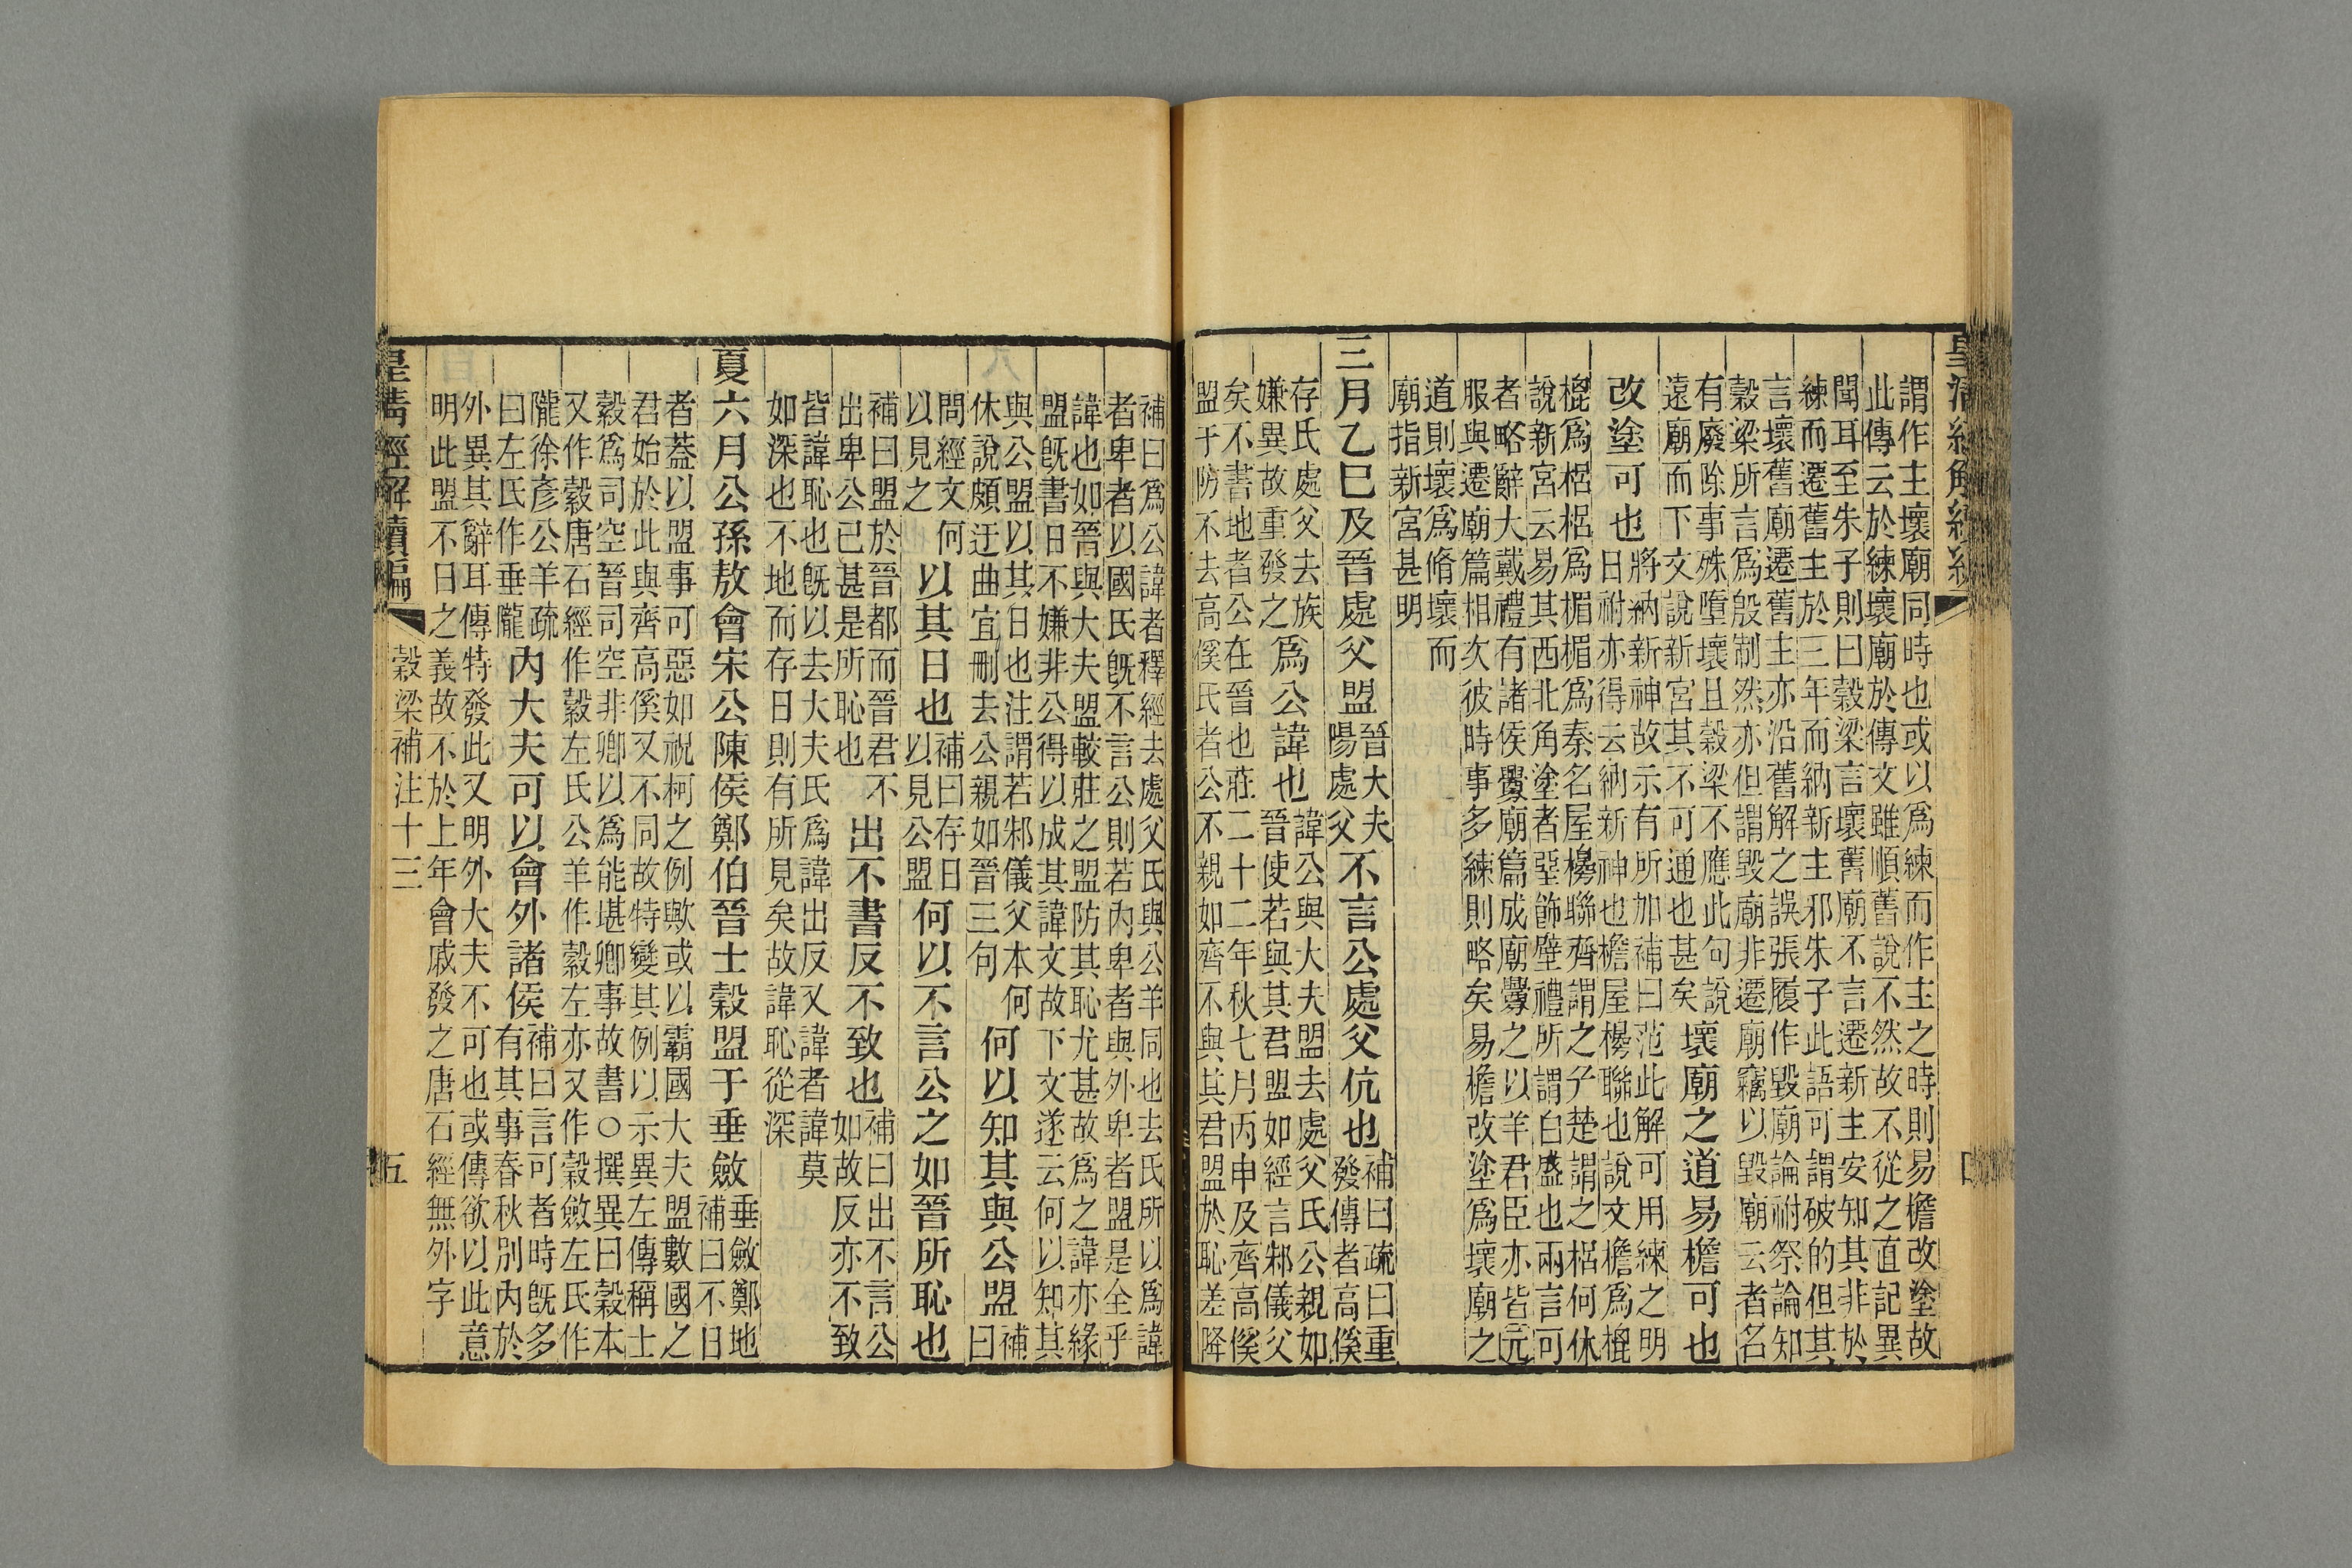 皇清經解續編
謂作主壞廟同時也或以爲練而作主之時則易檐改塗故
此傳云於練壞廟於傳文雖順舊說不然故不從之直記異
聞耳至朱子則曰穀梁言壞舊廟不言遷新主安知其非於
練而遷舊主於三年而納新主邪朱子此語可謂破的但其
言壞舊廟遷舊主亦沿舊解之誤張履作毀廟論祔祭論知
穀梁所言爲殷制然亦但謂毀廟非遷廟竊以毀廟云者名
有廢除事殊墮壞且穀梁不應此句說
遠廟而下文說新宮其不可通也甚矣
壞廟之道易檐可也
改塗可也
將納新神故示有所加補曰范此解可用練之明
日祔亦得云納新神也檐屋櫋聯也說文檐爲㮰
㮰爲梠梠爲楣楣爲秦名屋櫋聯齊謂之厃楚謂之梠何休
說新宮云易其西北角塗者堊飾壁禮所謂白盛也兩言可
者略辭大戴禮有諸侯釁廟篇成廟釁之以羊君臣亦皆元
服與遷廟篇相次彼時事多練則略矣易檐改塗爲壞廟之
道則壞爲脩壞而
廟指新宮甚明
三月乙巳及晉處父盟
晉大夫
陽處父
不言公處父伉也
補曰疏曰重
發傳者高傒
存氏處父去族
嫌異故重發之
爲公諱也
諱公與大夫盟去處父氏公親如
晉使若與其君盟如經言邾儀父
矣不書地者公在晉也莊二十二年秋七月丙申及齊高傒
盟于防不去高傒氏者公不親如齊不與其君盟於恥差降
補曰爲公諱者釋經去處父氏與公羊同也去氏所以爲諱
者卑者以國氏旣不言公則若內卑者與外卑者盟是全乎
諱也如晉與大夫盟較莊之盟防其恥尤甚故爲之諱亦緣
盟旣書日不嫌非公得以成其諱文故下文遂云何以知其
與公盟以其日也注謂若邾儀父本何
休說頗迂曲宜刪去公親如晉三句
何以知其與公盟
補
曰
問經文何
以見之
以其日也
補曰存日
以見公盟
何以不言公之如晉所恥也
補曰盟於晉都而晉君不
出卑公已甚是所恥也
出不書反不致也
補曰出不言公
如故反亦不致
皆諱恥也旣以去大夫氏爲諱出反又諱者諱莫
如深也不地而存日則有所見矣故諱恥從深
夏六月公孫敖會宋公陳侯鄭伯晉士穀盟于垂斂
垂斂鄭地
補曰不日
者蓋以盟事可惡如祝柯之例歟或以霸國大夫盟數國之
君始於此與齊高傒又不同故特變其例以示異左傳稱士
穀爲司空晉司空非卿以爲能堪卿事故書○撰異曰穀本
又作穀唐石經作穀左氏公羊作穀左亦又作穀斂左氏作
隴徐彥公羊疏
曰左氏作垂隴
內大夫可以會外諸侯
補曰言可者時旣多
有其事春秋別內於
外異其辭耳傳特發此又明外大夫不可也或傳欲以此意
明此盟不日之義故不於上年會戚發之唐石經無外字
皇清經解續編
穀梁補注十三
五